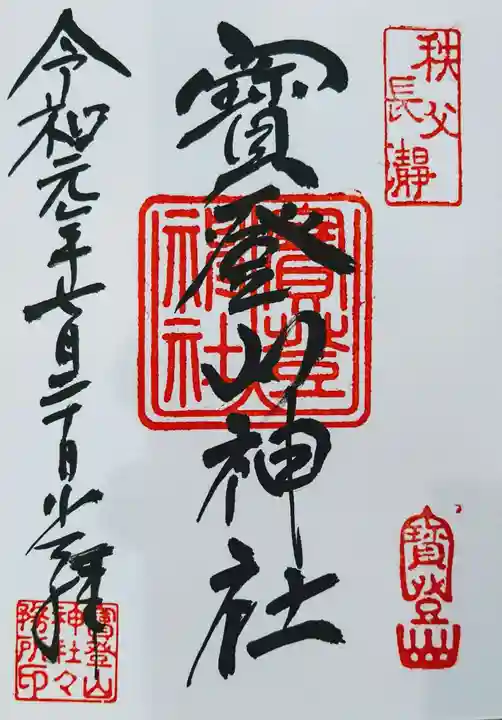 秩父
長瀞
寳登山神社
寳登山
神社
寳登山
令和元年七月二十日参拝
寳登山
神社々
務所印